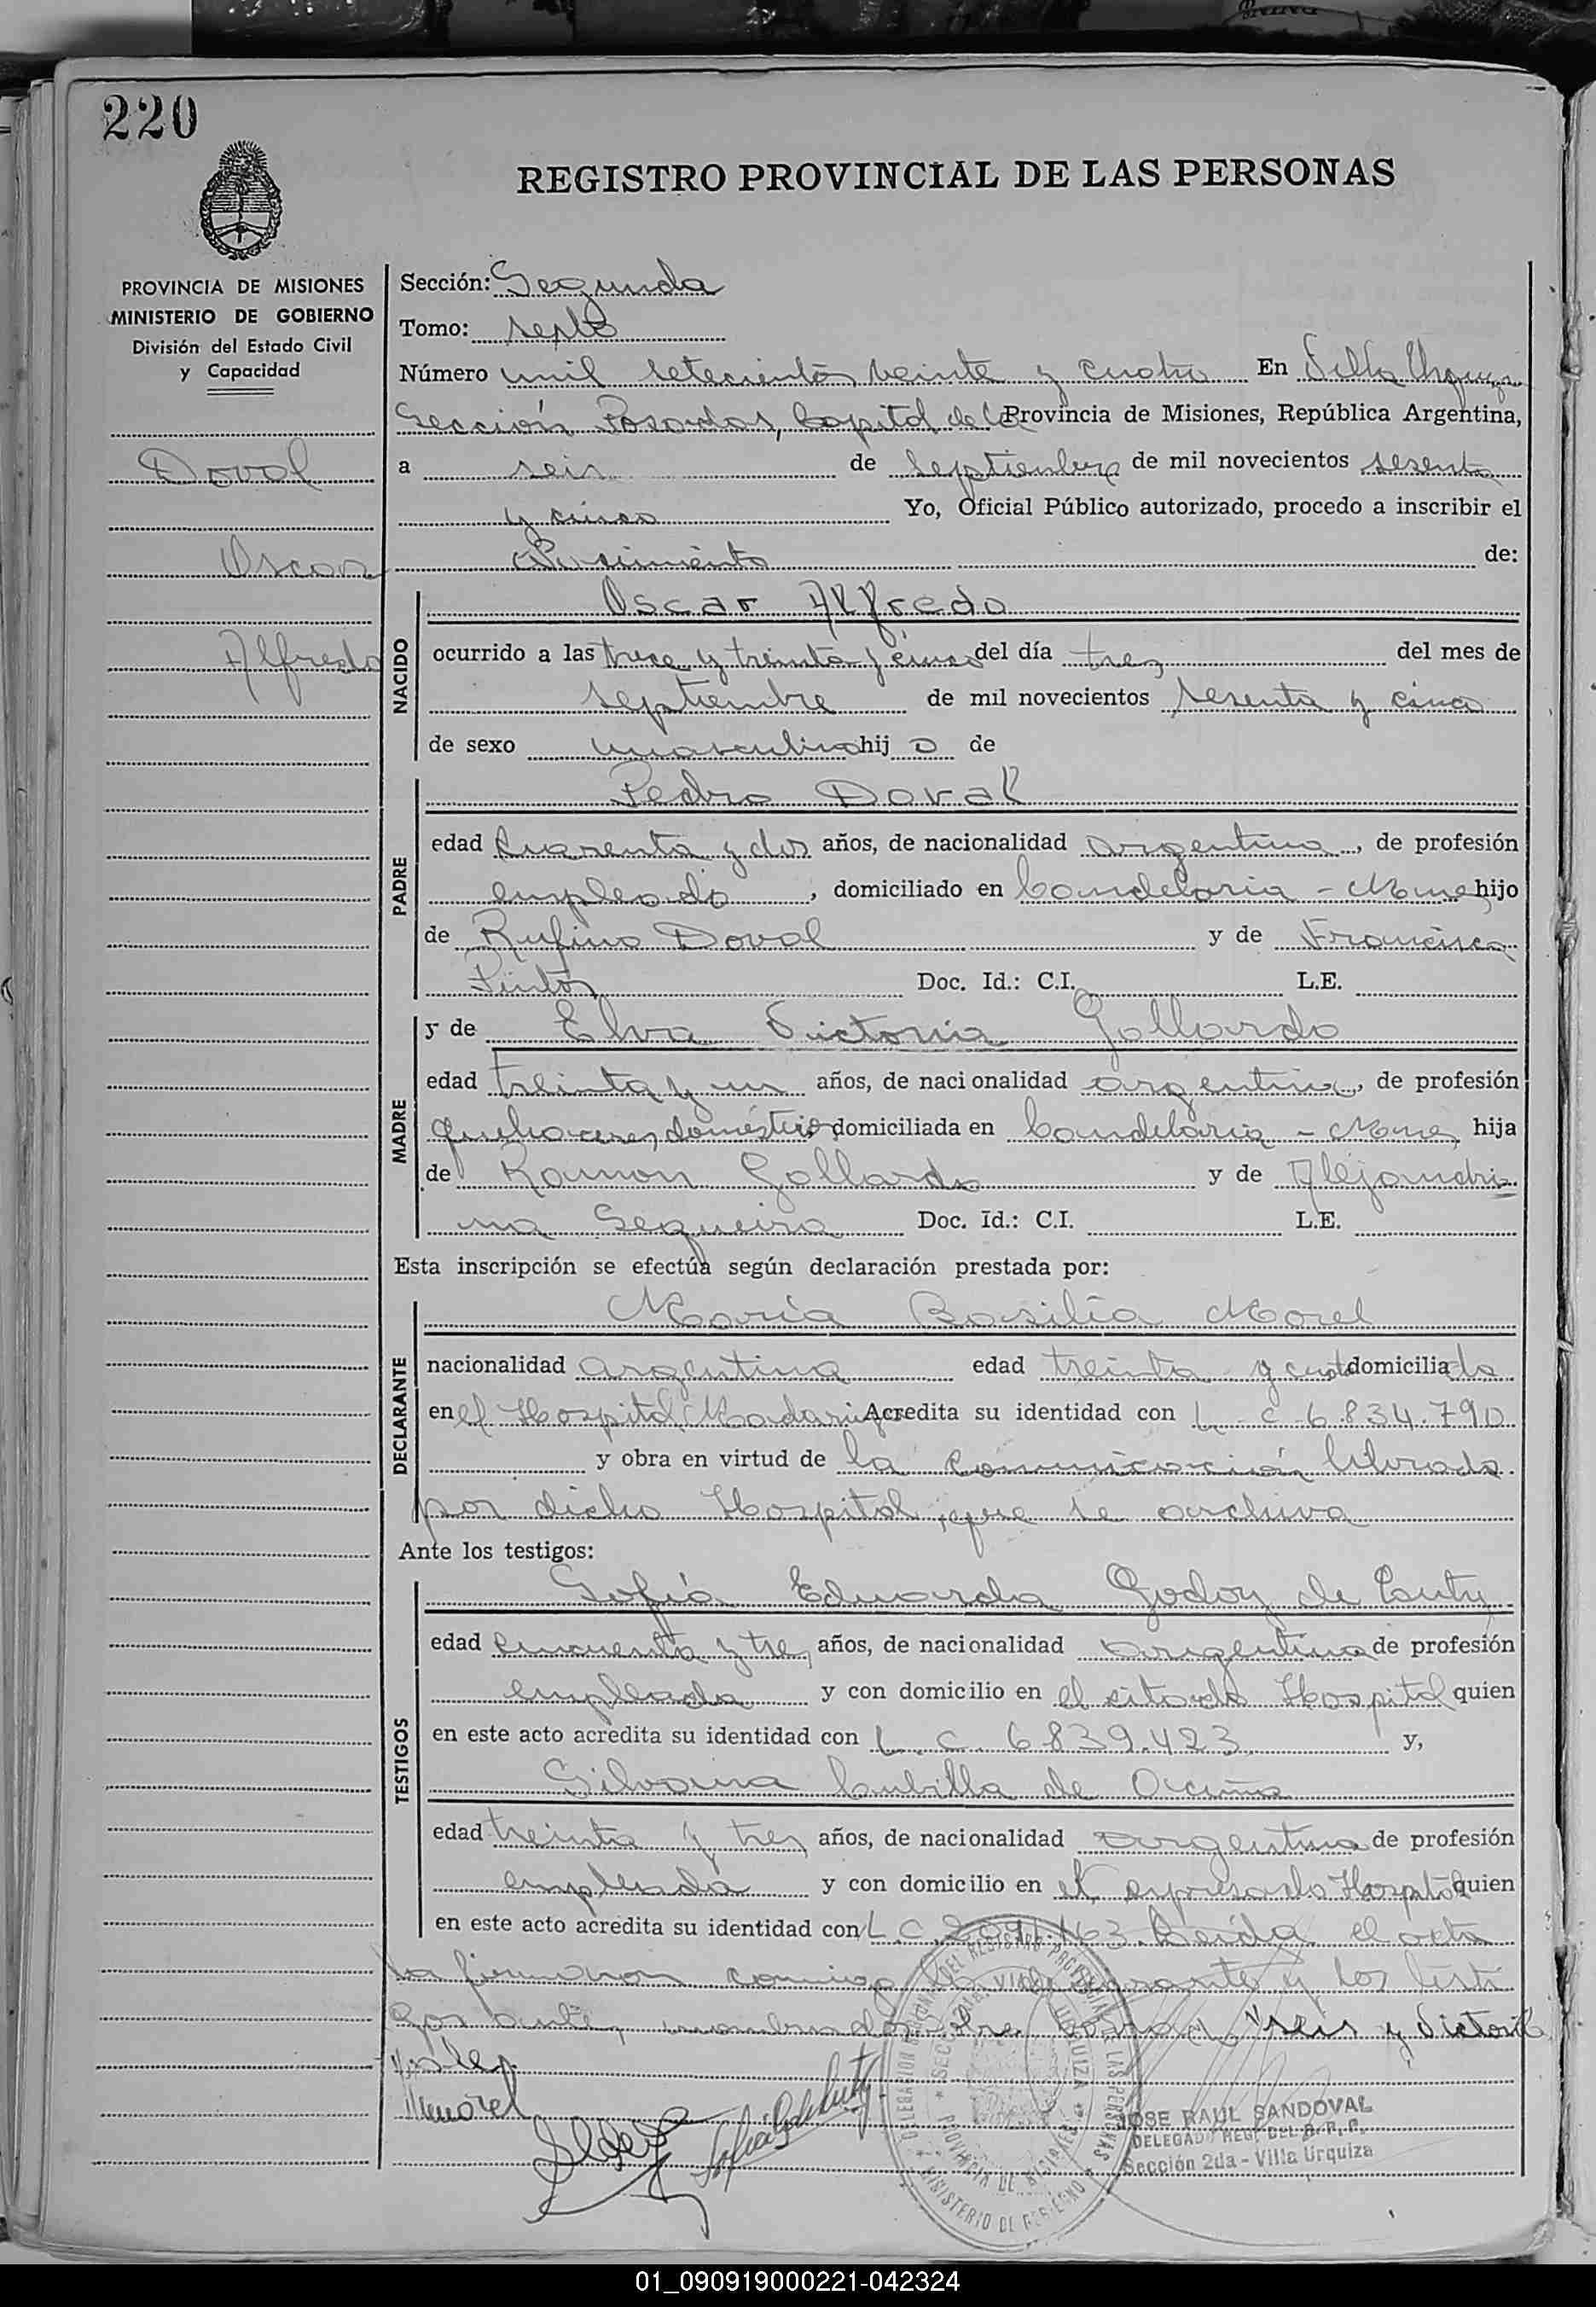 220
REGISTRO PROVINCIAL DE LAS PERSONAS
PROVINCIA DE MISIONES
MINISTERIO DE GOBIERNO
División del Estado Civil
y Capacidad
Doval
Oscar
Alfredo
Sección: Segunda
Tomo: septo
Número mil setecientos veinte y cuatro En Villa Urquiza
Sección Posadas, Capital de la Provincia de Misiones, República Argentina,
a seis de Septiembre de mil novecientos sesenta
y cinco Yo, Oficial Público autorizado, procedo a inscribir el
Nacimiento de:
NACIDO
Oscar Alfredo
ocurrido a las trece y treinta y cinco del día tres del mes de
septiembre de mil novecientos sesenta y cinco
de sexo masculino hijo de
PADRE
Pedro Doval
edad cuarenta y dos años, de nacionalidad argentina, de profesión
empleado, domiciliado en Candelaria - Mnes hijo
de Rufino Doval y de Francisca
Pintos Doc. Id.: C.I. L.E.
MADRE
y de Elva Victoria Gallardo
edad treinta y un años, de nacionalidad argentina, de profesión
quehaceres domésticos domiciliada en Candelaria - Mnes, hija
de Ramon Gallardo y de Alejandri
na Sequeira Doc. Id.: C.I. L.E.
Esta inscripción se efectúa según declaración prestada por:
DECLARANTE
María Basilia Morel
nacionalidad argentina edad treinta y cuatro domiciliada
en el Hospital Madariaga Acredita su identidad con L. C 6.834.790
y obra en virtud de la comunicación librada
por dicho Hospital, que se archiva
Ante los testigos:
TESTIGOS
Sofía Eduarda Godoy de Luty
edad cincuenta y tres años, de nacionalidad argentina de profesión
empleada y con domicilio en el citado Hospital quien
en este acto acredita su identidad con L. C. 6839.423 y,
Silvana Cubilla de Ocuña
edad treinta y tres años, de nacionalidad argentina de profesión
empleada y con domicilio en el expresado Hospital quien
en este acto acredita su identidad con L.C. 163. Leida el acta
la firmaron conmigo la declarante y los testi
gos antes nombrados. Sobre "seis y Victoria
Vale.
Mmorel
Sofía G de Luty
DELEGACION DEL REGISTRO PROVINCIAL DE LAS PERSONAS
SECCION VILLA URQUIZA
PROVINCIA DE MISIONES
MINISTERIO DE GOBIERNO
JOSE RAUL SANDOVAL
DELEGADO REG. DEL R. P. P.
Sección 2da - Villa Urquiza
01_090919000221-042324